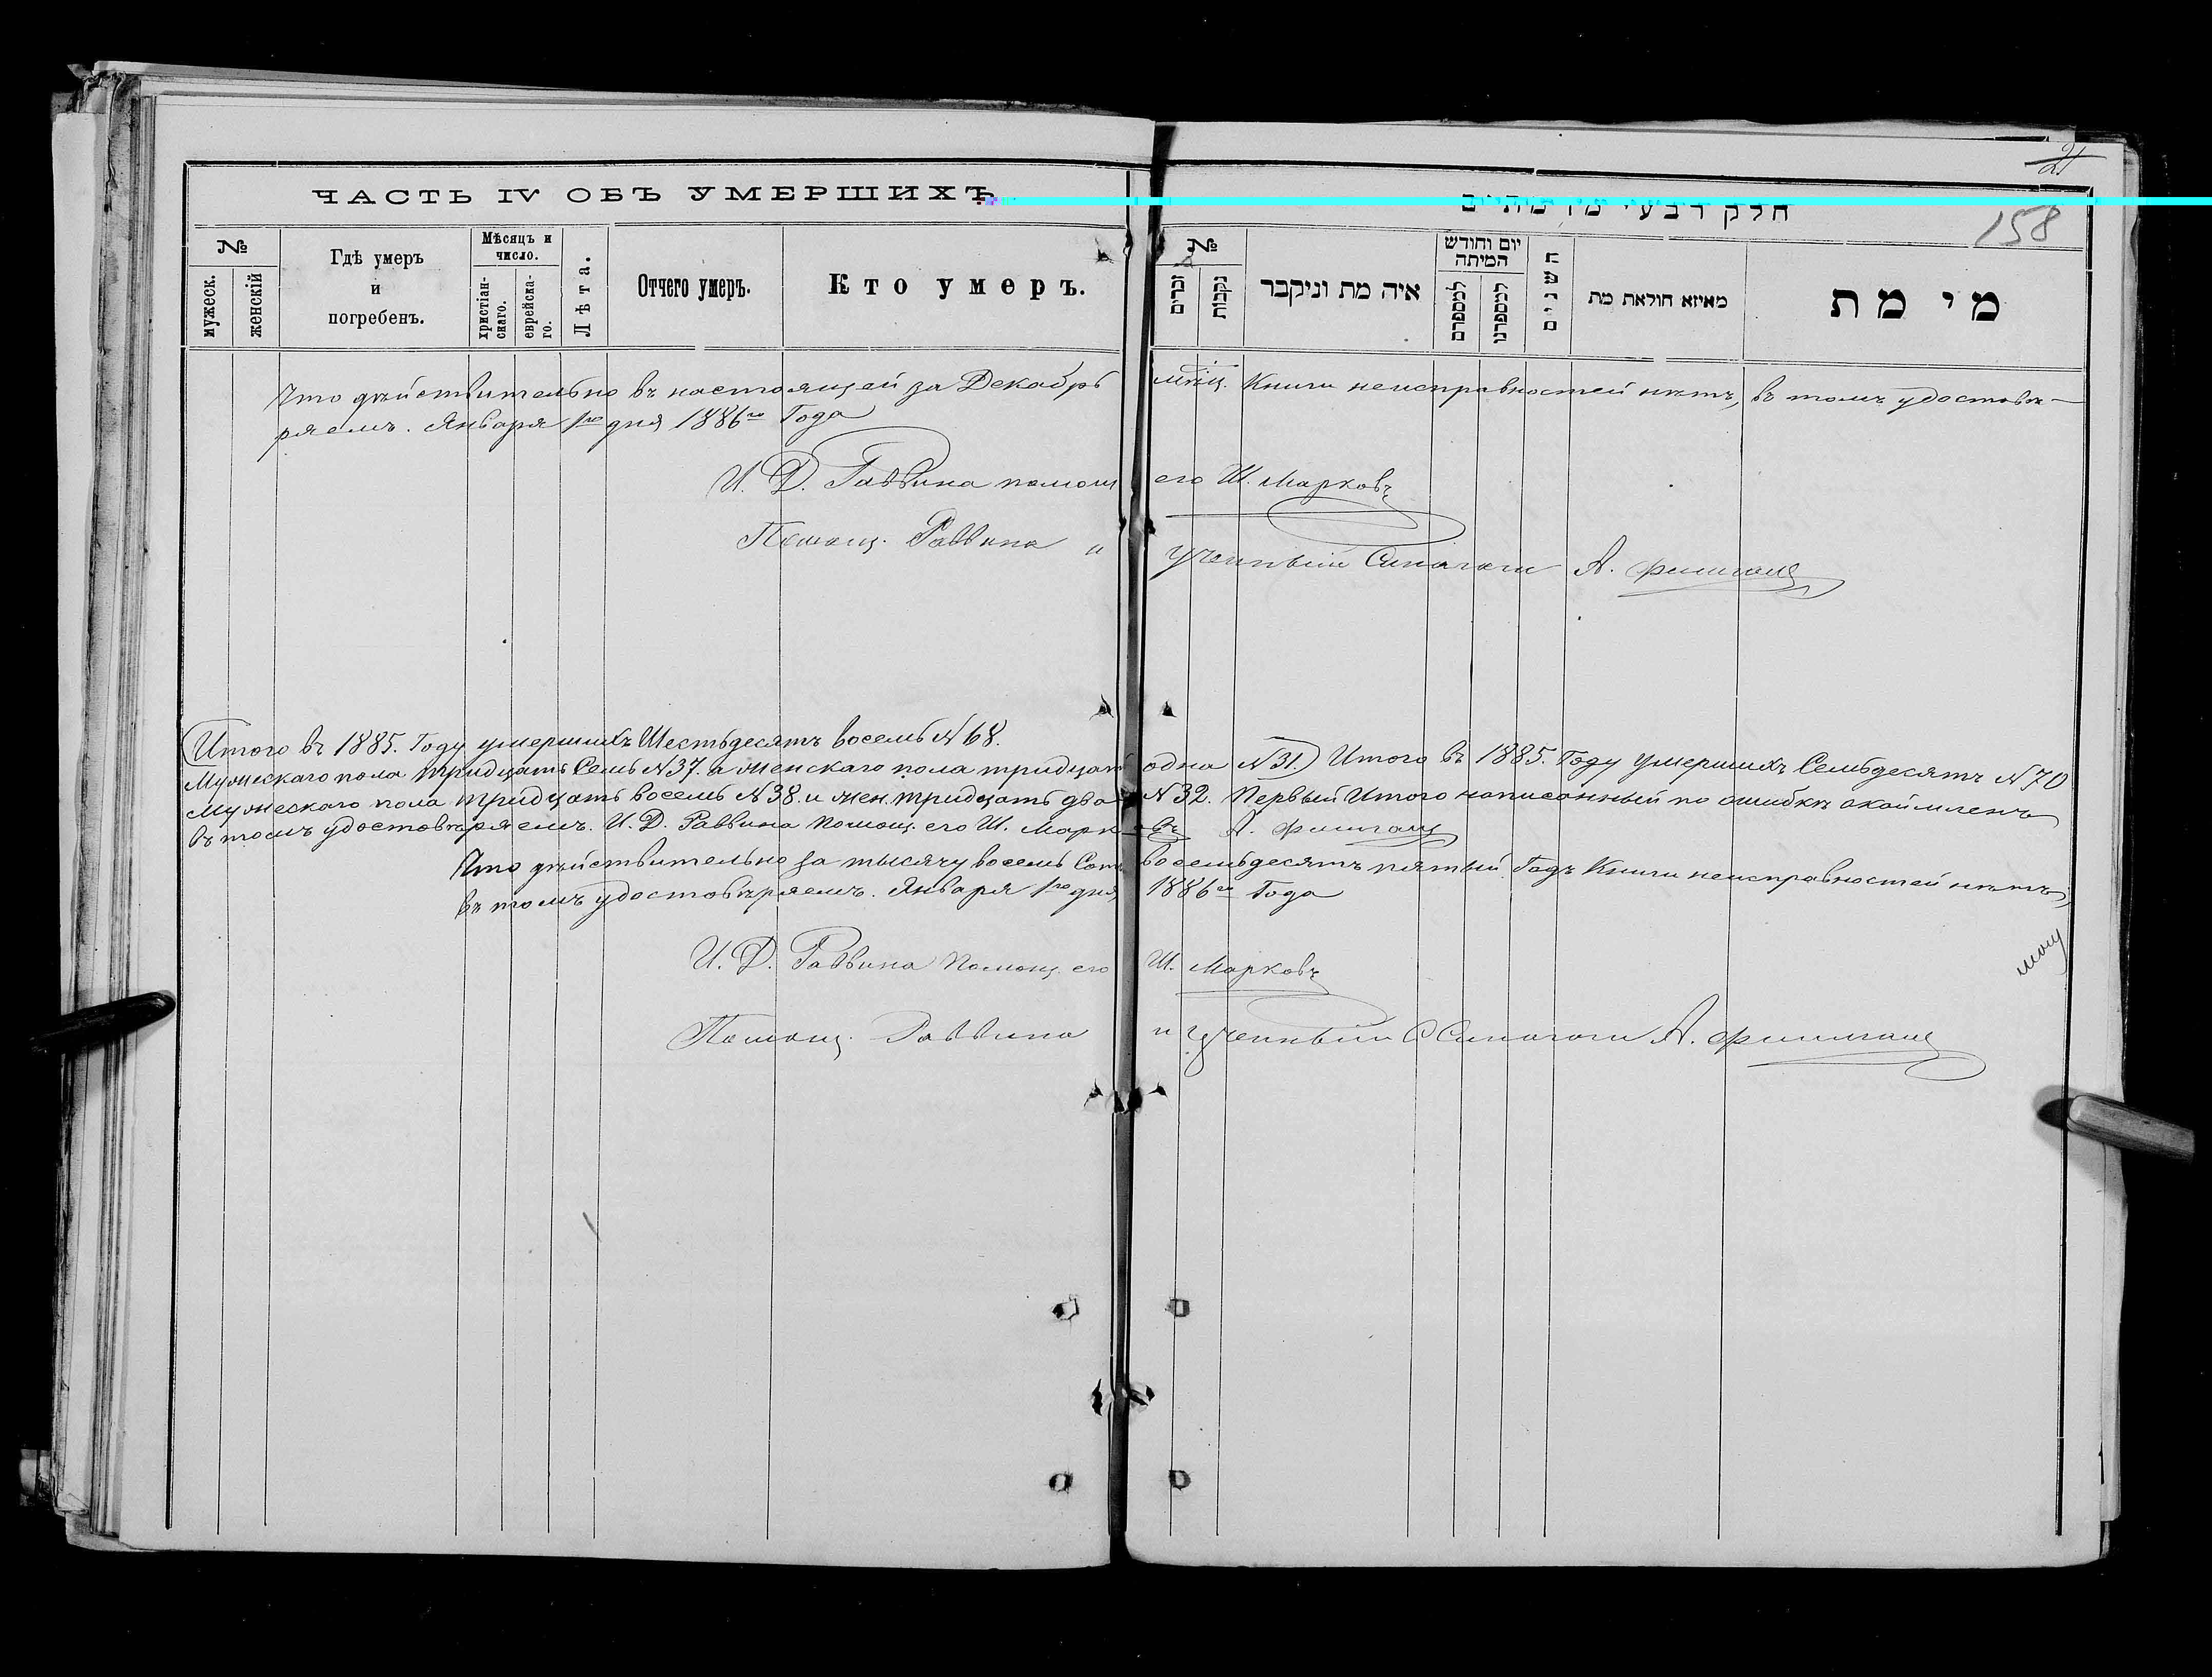 21
158
ЧАСТЬ IV ОБЪ УМЕРШИХЪ.
חלק רבעי מן מתים
№
мужеск.
женскій
Гдѣ умеръ
и
погребенъ.
Мѣсяцъ и
число.
христіан-
скаго.
еврейска-
го.
Лѣта.
Отчего умеръ.
Кто умеръ.
№
זכרים
נקבות
איה מת וניקבר
יום וחודש
המיתה
למספרם
למספרנו
השנים
מאיזא חולאת מת
מי מת
Что дѣйствительно въ настоящей за Декабрь мѣсц. Книги неисправностей нѣтъ, въ томъ удостовѣ-
ряемъ. Января 1го дня 1886го Года
И. Д. Раввина помощ его Ш. Марковъ
Помощ. Раввина и ученный Синагоги А.
Итого въ 1885. Году умершихъ Шестьдесятъ восемь N 68.
Мужскаго пола тридцать Семь N 37. а женскаго пола тридцать одна N 31.) Итого въ 1885. Году умершихъ Семьдесятъ N 70
Мужескаго пола тридцать восемь N 38. и жен. тридцать два N 32. Первый Итого написанный по ошибкѣ окоймленъ
въ томъ удостовѣряемъ. И. Д. Раввина помощ. его Ш. Марковъ А.
Что дѣйствительно за тысячу восемь Сотъ восемьдесятъ пятый Годъ Книги неисправностей нѣтъ,
въ томъ удостовѣряемъ. Января 1го дня 1886го Года
И. Д. Раввина Помощ. его Ш. Марковъ
Помощ. Раввина и ученный Синагоги А.